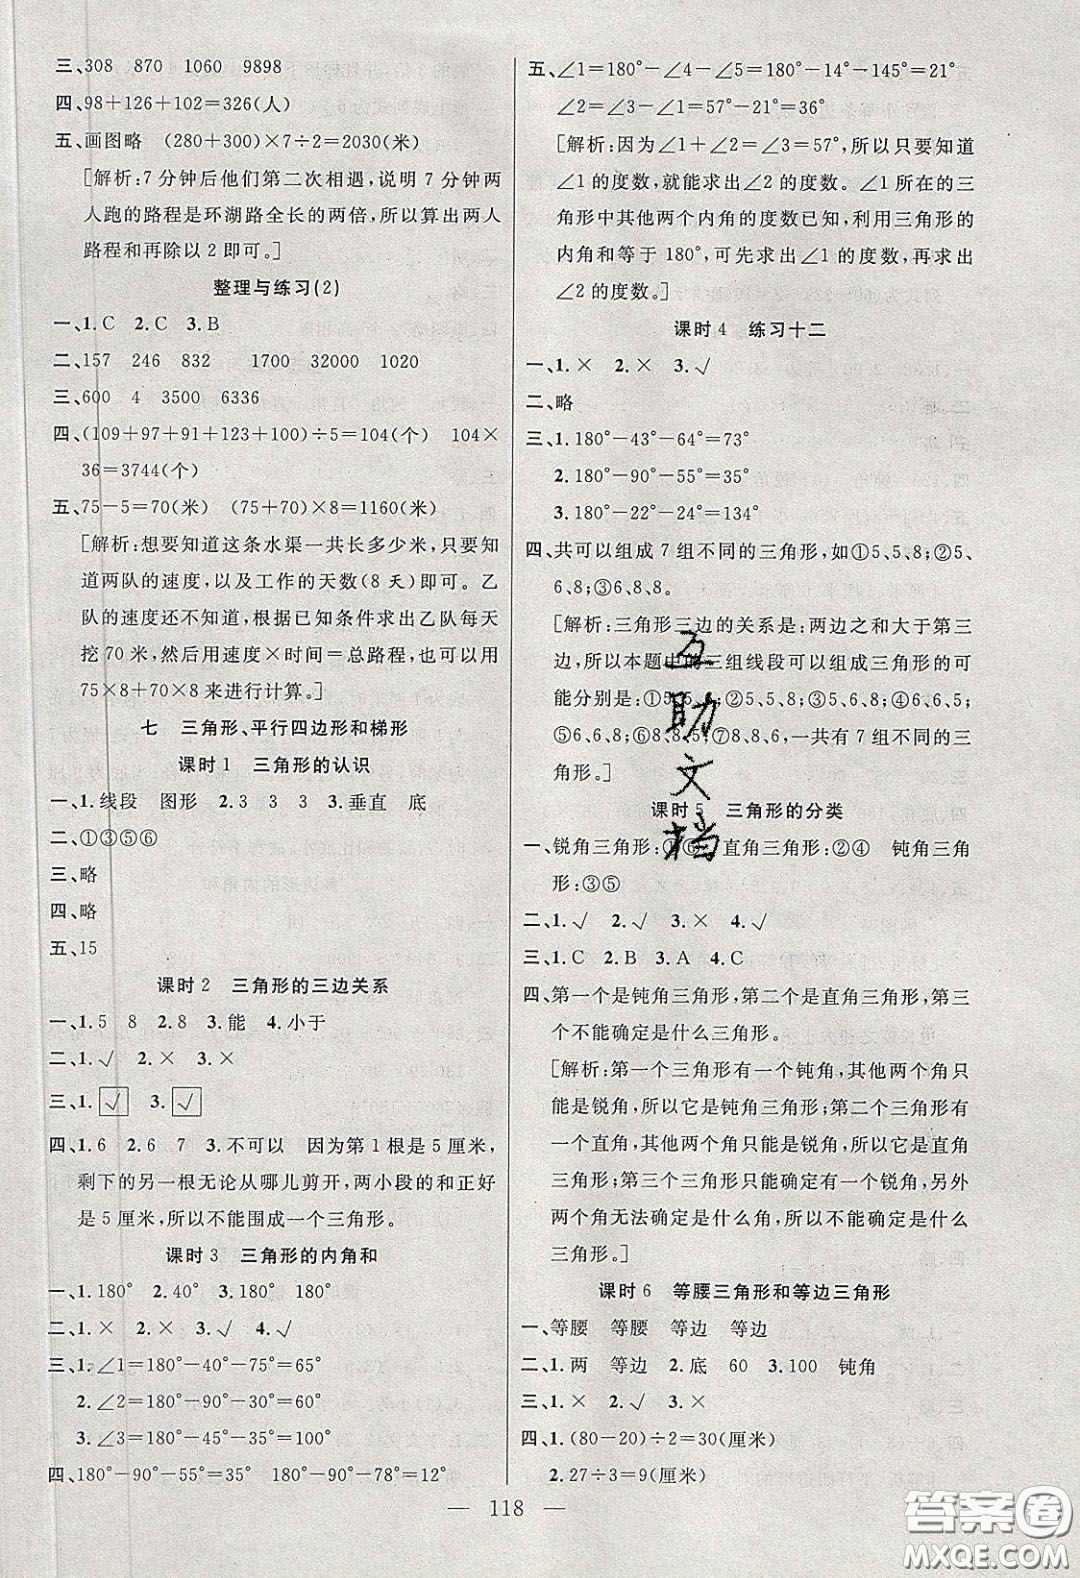 三、308　870　1060　9898
四、98＋126＋102＝326(人)
五、画图略　(280＋300)×7÷2＝2030(米)
[解析:7分钟后他们第二次相遇,说明7分钟两
人跑的路程是环湖路全长的两倍,所以算出两人
路程和再除以2即可。]
整理与练习(2)
一、1.C　2.C　3.B
二、157　246　832　1700　32000　1020
三、600　4　3500　6336
四、(109＋97＋91＋123＋100)÷5＝104(个)　104×
36＝3744(个)
五、75－5＝70(米)　(75＋70)×8＝1160(米)
[解析:想要知道这条水渠一共长多少米,只要知
道两队的速度,以及工作的天数(8天)即可。乙
队的速度还不知道,根据已知条件求出乙队每天
挖70米,然后用速度×时间＝总路程,也可以用
75×8＋70×8来进行计算。]
七　三角形、平行四边形和梯形
课时1　三角形的认识
一、1.线段　图形　2.3　3　3　3.垂直　底
二、①③⑤⑥
三、略
四、略
五、15
课时2　三角形的三边关系
一、1.5　8　2.8　3.能　4.小于
二、1.√　2.×　3.×
三、1.√　3.√
四、1.6　2.6　7　3.不可以　因为第1根是5厘米,
剩下的另一根无论从哪儿剪开,两小段的和正好
是5厘米,所以不能围成一个三角形。
课时3　三角形的内角和
一、1.180°　2.40°　3.180°　180°　180°
二、1.×　2.×　3.√　4.√
三、1.∠1＝180°－40°－75°＝65°
2.∠2＝180°－90°－30°＝60°
3.∠3＝180°－55°－25°＝100°
四、180°－90°－55°＝35°　180°－90°－78°＝12°
五、∠1＝180°－∠4－∠5＝180°－14°－145°＝21°
∠2＝∠3－∠1＝57°－21°＝36°
[解析:因为∠1＋∠2＝∠3＝57°,所以只要知道
∠1的度数,就能求出∠2的度数。∠1所在的三
角形中其他两个内角的度数已知,利用三角形的
内角和等于180°,可先求出∠1的度数,再求出
∠2的度数。]
课时4　练习十二
一、1.×　2.×　3.√
二、略
三、1.180°－43°－64°＝73°
2.180°－90°－55°＝35°
3.180°－22°－24°＝134°
四、共可以组成7组不同的三角形,如①5、5、8;②5、
6、8;③6、8、8。
[解析:三角形三边的关系是:两边之和大于第三
边,所以本题中的三组线段可以组成三角形的可
能分别是:①5、5、6;②5、5、8;③5、8、8;④6、6、5;
⑤6、6、8;⑥6、8、5;⑦8、8、6,一共有7组不同的三
角形。]
课时5　三角形的分类
一、锐角三角形:①⑥　直角三角形:②④　钝角三角
形:③⑤
二、1.√　2.√　3.×　4.√
三、1.C　2.B　3.A　4.C
四、第一个是钝角三角形,第二个是直角三角形,第三
个不能确定是什么三角形。
[解析:第一个三角形有一个钝角,其他两个角只
能是锐角,所以是钝角三角形;第二个三角形有
一个直角,其他两个角只能是锐角,所以是直角
三角形;第三个三角形只能确定有一个锐角,另外
两个角无法确定是什么角,所以不能确定是什么
三角形。]
课时6　等腰三角形和等边三角形
一、等腰　等腰　等边　等边
二、1.两　等边　2.底　60　3.100　钝角
三、1.×　2.√　3.×
四、1.(80－20)÷2＝30(厘米)
2.27÷3＝9(厘米)
— 118 —
互助文档
答案圈
MXQE.COM